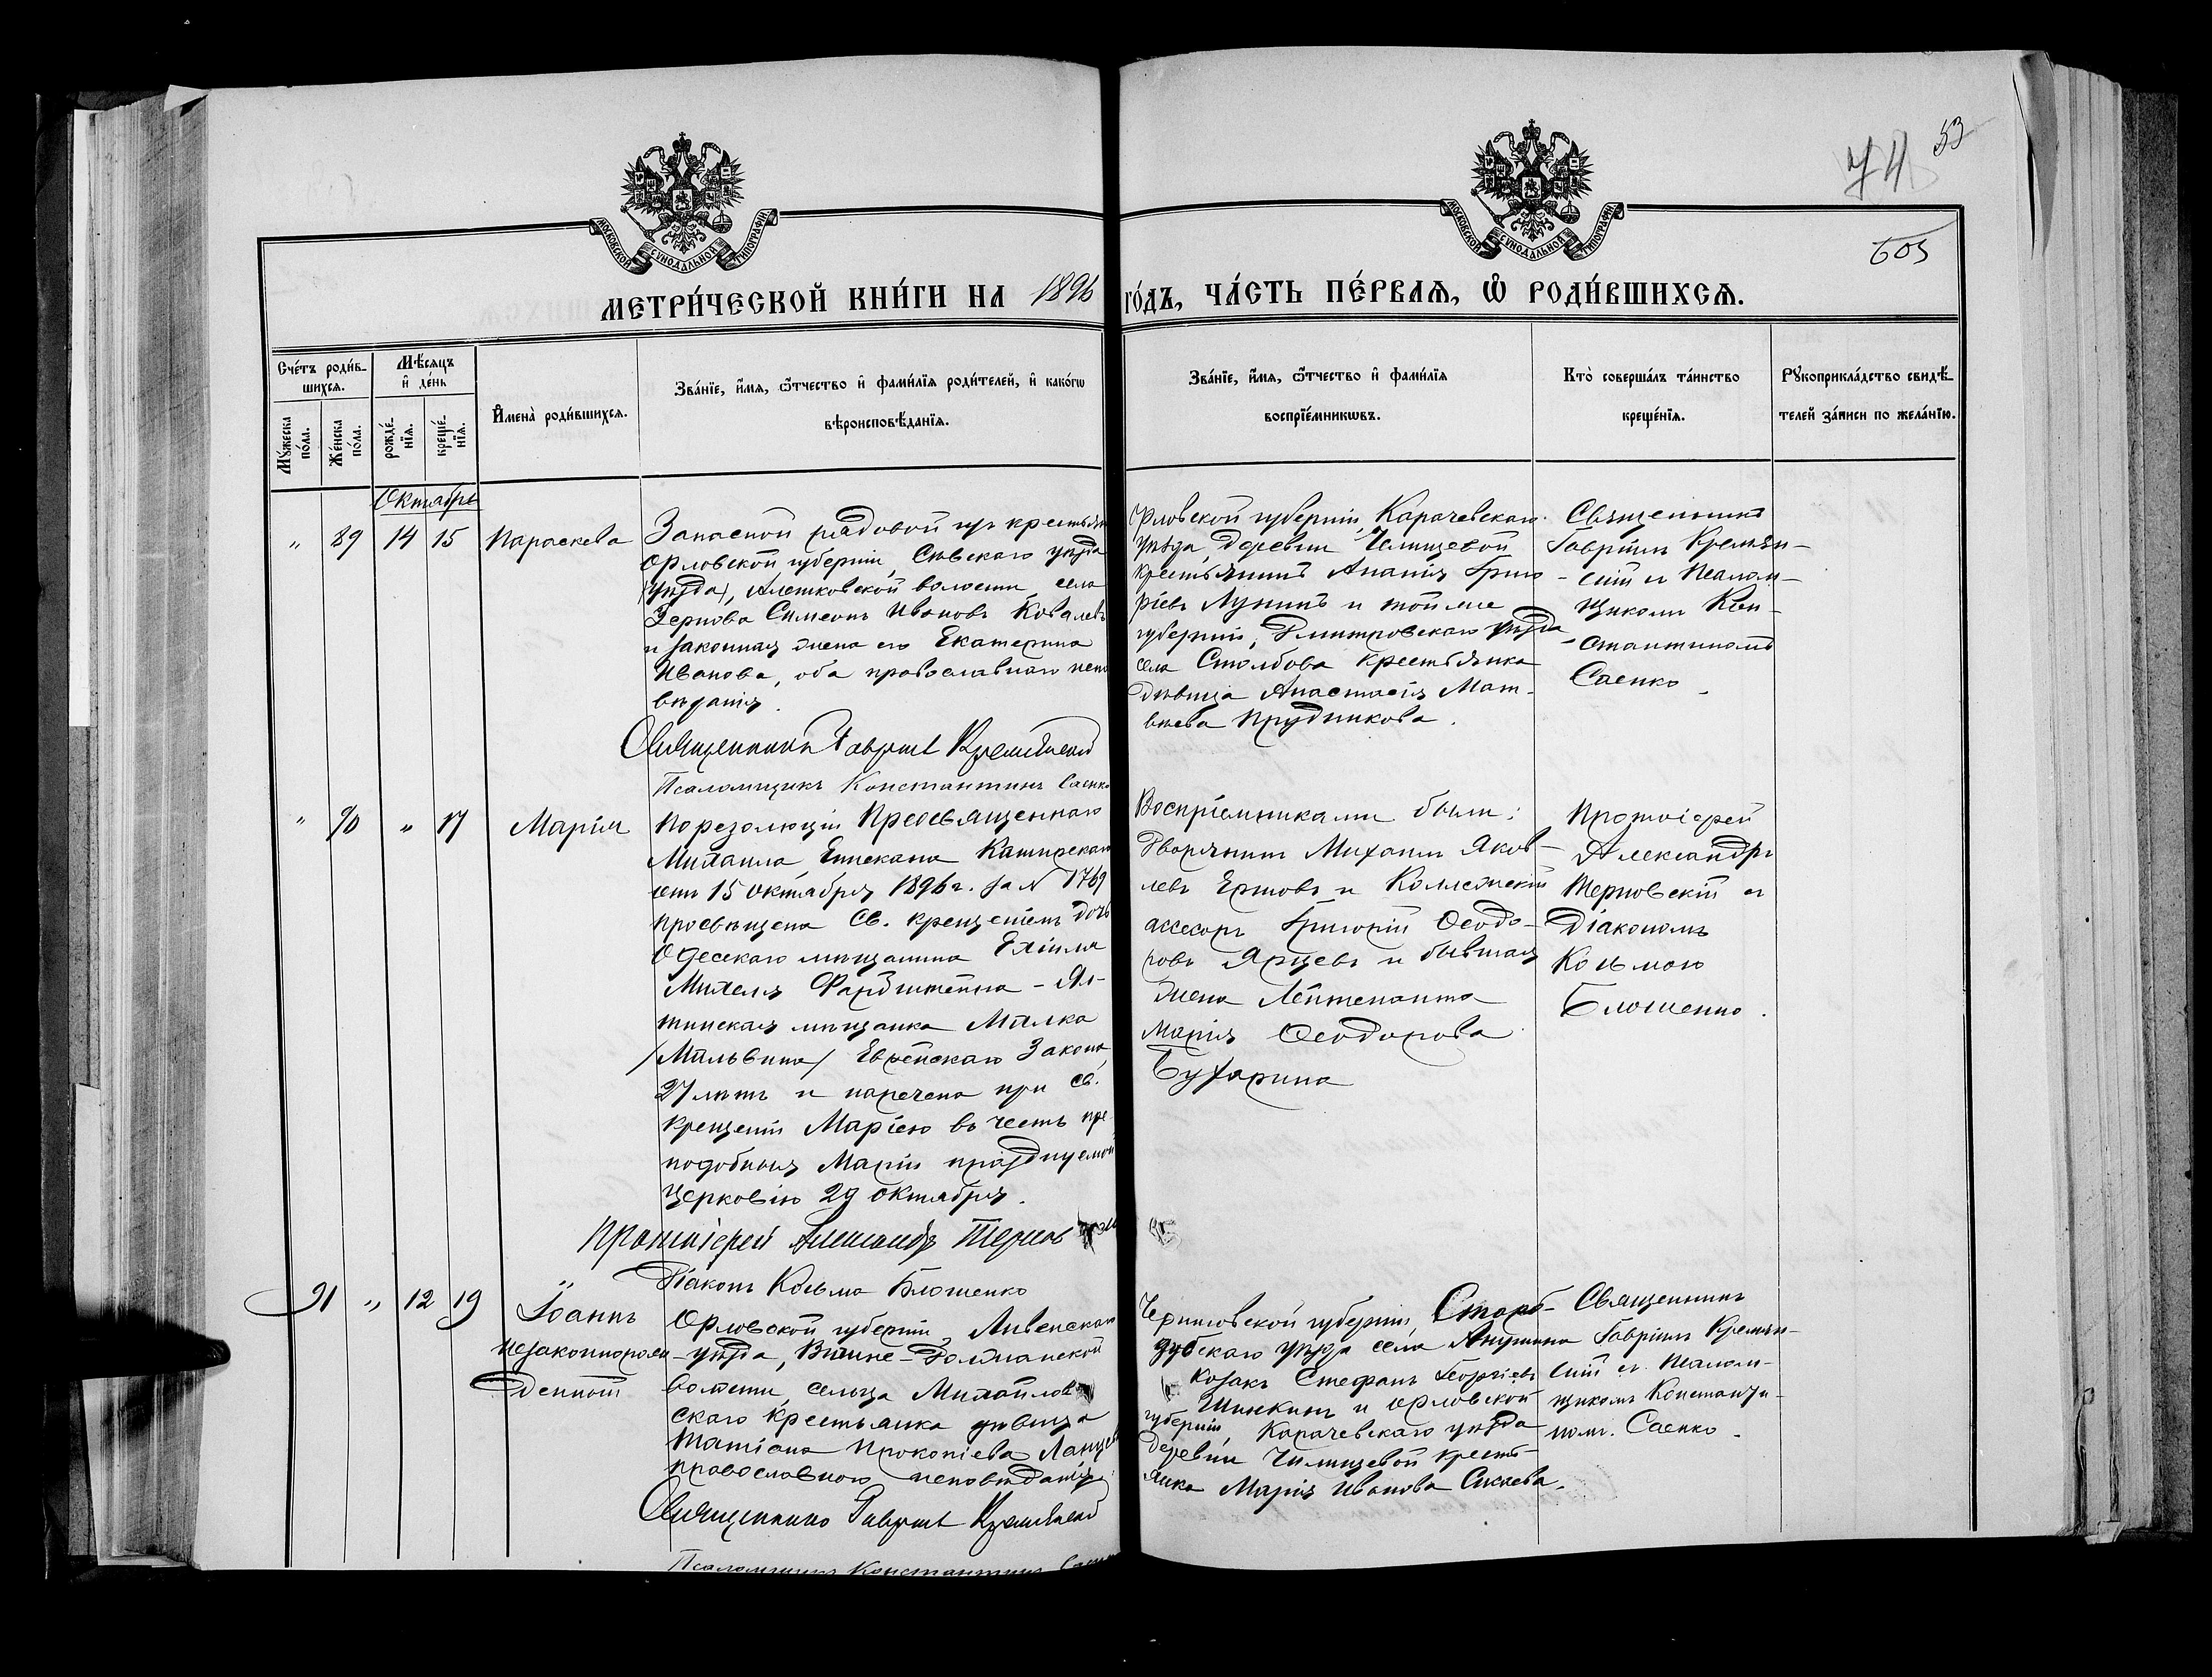 74
53
605
МОСКОВСКОЙ СУНОДАЛЬНОЙ ТИПОГРАФІИ
МОСКОВСКОЙ СУНОДАЛЬНОЙ ТИПОГРАФІИ
МЕТРИ́ЧЕСКОЙ КНИ́ГИ НА 1896 ГО́ДЪ, ЧА́СТЬ ПЕ́РВАѦ, Ѡ҆ РОДИ́ВШИХСѦ.
Сче́тъ роди́в-
шихся.
Мѣ́сяцъ
и҆ де́нь
Мꙋ́жеска
по́ла.
Же́нска
по́ла.
рожде́-
нїѧ.
креще́-
нїѧ.
И҆мена̀ роди́вшихсѧ.
Зва́нїе, и҆́мѧ, ѻ҆́тчество и҆ фами́лїѧ роди́телей, и҆ како́гѡ
вѣроисповѣ́данїѧ.
Зва́нїе, и҆́мѧ, ѻ҆́тчество и҆ фами́лїѧ
воспрїе́мникѡвъ.
Кто̀ соверша́лъ та́инство
креще́нїѧ.
Рꙋкоприкла́дство свидѣ́-
телей за́писи по жела́нїю.
Октябрь
„ 89 14 15 Параскева
Запасной рядовой изъ крестьян
Орловской губерніи, Сѣвскаго уѣзда
(уѣзда), Алешковской волости, села
Зернова Симеонъ Ивановъ Ковалевъ
и законная жена его Екатерина
Иванова, оба православнаго испо
вѣданія.
Священникъ Гавріилъ
Псаломщикъ Константинъ Саенко
Орловской губерніи, Карачевскаго
уѣзда, деревни Челищевой
крестьянинъ Ананія Григо
ріевъ Лунинъ и той же
губерніи, Дмитровскаго уѣзда
села Столбова крестьянка
дѣвица Анастасія Мат-
вѣева Прудникова.
Священникъ
Гавріилъ Кремян-
скій съ псалом-
щикомъ Кон-
стантиномъ
Саенко.
„ 90 „ 17 Марія
По резолюціи Преосвященнаго
Михаила Епископа Каширскаго
отъ 15 октября 1896 г. за № 1769
просвѣщена Св. крещеніемъ дочь
Одесскаго мѣщанина Ехіила
Михеля – Ял-
тинская мѣщанка Малка
/Мальвина/ Еврейскаго Закона
27 лѣтъ и наречена при св.
крещеніи Маріею въ честь пре-
подобныя Маріи празднуемой
Церковію 29 октября.
Протоіерей Александръ Тернов
Діаконъ Козьма Блошенко
Воспріемниками были:
Дворянинъ Михаилъ Яков-
левъ Ершовъ и Коллежскій
ассесоръ Григорій Ѳеодо-
ровъ Ярцевъ и бывшая
жена Лейтенанта
Марія Ѳеодорова
Бухарина
Протоіерей
Александръ
Терновскій съ
Діакономъ
Козьмою
Блошенко.
91 „ 12 19 Іоаннъ
незаконнорож-
денный
Орловской губерніи, Ливенскаго
уѣзда, Вышне-Должанской
волости, сельца Михайлов
скаго крестьянка дѣвица
Татіана Прокопіева
православнаго исповѣданія.
Священникъ Гавріилъ
Псаломщикъ Константинъ
Черниговской губерніи, Старо-
дубскаго уѣзда села
козакъ Стефанъ Георгіевъ
Шишкинъ и Орловской
губерніи, Карачевскаго уѣзда
деревни Чилищевой кресть-
янка Марія Иванова
Священникъ
Гавріилъ Кремян-
скій съ псалом-
щикомъ Константи-
номъ Саенко.